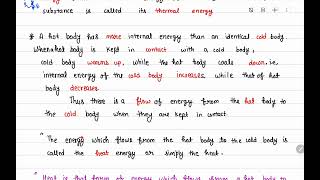 substance is called its thermal energy
A hot body has more internal energy than an identical cold body.
When a hot body is kept in contact with a cold body,
cold body warms up, while the hot body cools down, ie.
internal energy of the cold body increases while that of hot
body decreases
Thus there is a flow of energy from the hot body to
the cold body when they are kept in contact
The energy which flows from the hot body to the cold body is
called the heat energy or simply the heat.
Heat is that form of energy which flows from a hot body to